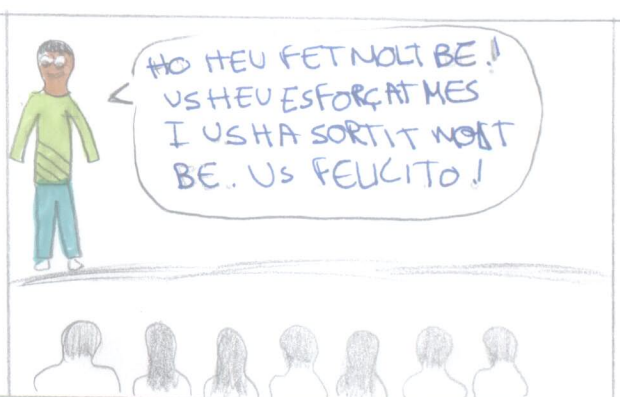 HO HEU FET MOLT BE!
US HEU ESFORÇAT MES
I US HA SORTIT MOLT
BE. US FELICITO!